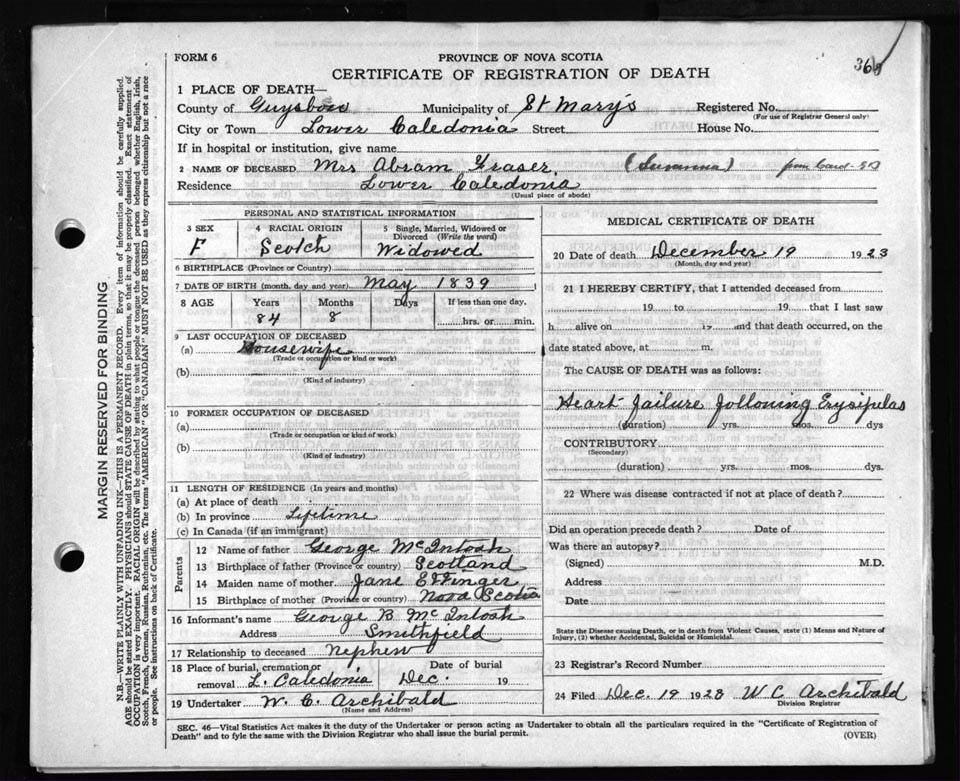 FORM 6
PROVINCE OF NOVA SCOTIA
CERTIFICATE OF REGISTRATION OF DEATH
1 PLACE OF DEATH—
County of Guysboro Municipality of St Mary's Registered No.
(For use of Registrar General only)
City or Town Lower Caledonia Street House No.
If in hospital or institution, give name
2 NAME OF DECEASED Mrs Abram Fraser. (Susanna) from Card
Residence Lower Caledonia
(Usual place of abode)
PERSONAL AND STATISTICAL INFORMATION
3 SEX 4 RACIAL ORIGIN 5 Single, Married, Widowed or Divorced (Write the word)
F Scotch Widowed
6 BIRTHPLACE (Province or Country)
7 DATE OF BIRTH (month, day and year) May 1839
8 AGE Years Months Days If less than one day,
84 8 hrs. or min.
9 LAST OCCUPATION OF DECEASED
(a) Housewife
(Trade or occupation or kind or work)
(b)
(Kind of industry)
10 FORMER OCCUPATION OF DECEASED
(a)
(Trade or occupation or kind of work)
(b)
(Kind of industry)
11 LENGTH OF RESIDENCE (In years and months)
(a) At place of death
(b) In province Lifetime
(c) In Canada (if an immigrant)
Parents
12 Name of father George McIntosh
13 Birthplace of father (Province or country) Scotland
14 Maiden name of mother Jane
15 Birthplace of mother (Province or country) Nova Scotia
16 Informant's name George B McIntosh
Address Smithfield
17 Relationship to deceased Nephew
18 Place of burial, cremation or removal L. Caledonia Date of burial Dec. 19
19 Undertaker W. C. Archibald
(Name and Address)
MEDICAL CERTIFICATE OF DEATH
20 Date of death December 19 1923
(Month, day and year)
21 I HEREBY CERTIFY, that I attended deceased from
19 to 19 that I last saw
h alive on 19 and that death occurred, on
date stated above, at m.
The CAUSE OF DEATH was as follows:
Heart failure following Erysipelas
(duration) yrs. mos. dys
CONTRIBUTORY
(Secondary)
(duration) yrs. mos. dys.
22 Where was disease contracted if not at place of death?
Did an operation precede death? Date of
Was there an autopsy?
(Signed) M.D.
Address
Date
State the Disease causing Death, or in death from Violent Causes, state (1) Means and Nature of
Injury, (2) whether Accidental, Suicidal or Homicidal.
23 Registrar's Record Number
24 Filed Dec. 19 1923 W C Archibald
Division Registrar
SEC. 46—Vital Statistics Act makes it the duty of the Undertaker or person acting as Undertaker to obtain all the particulars required in the "Certificate of Registration of
Death" and to fyle the same with the Division Registrar who shall issue the burial permit.
(OVER)
MARGIN RESERVED FOR BINDING
N.B.—WRITE PLAINLY WITH UNFADING INK—THIS IS A PERMANENT RECORD. Every item of information should be carefully supplied.
AGE should be stated EXACTLY. PHYSICIANS should STATE CAUSE OF DEATH in plain terms, so that it may be properly classified. Exact statement of
OCCUPATION is very important. RACIAL ORIGIN will be described by stating to what people or tongue the deceased person belonged whether English, Irish,
Scotch, French, German, Russian, Ruthenian, etc. The terms "AMERICAN" OR "CANADIAN" MUST NOT BE USED as they express citizenship but not a race
or people. See instructions on back of Certificate.